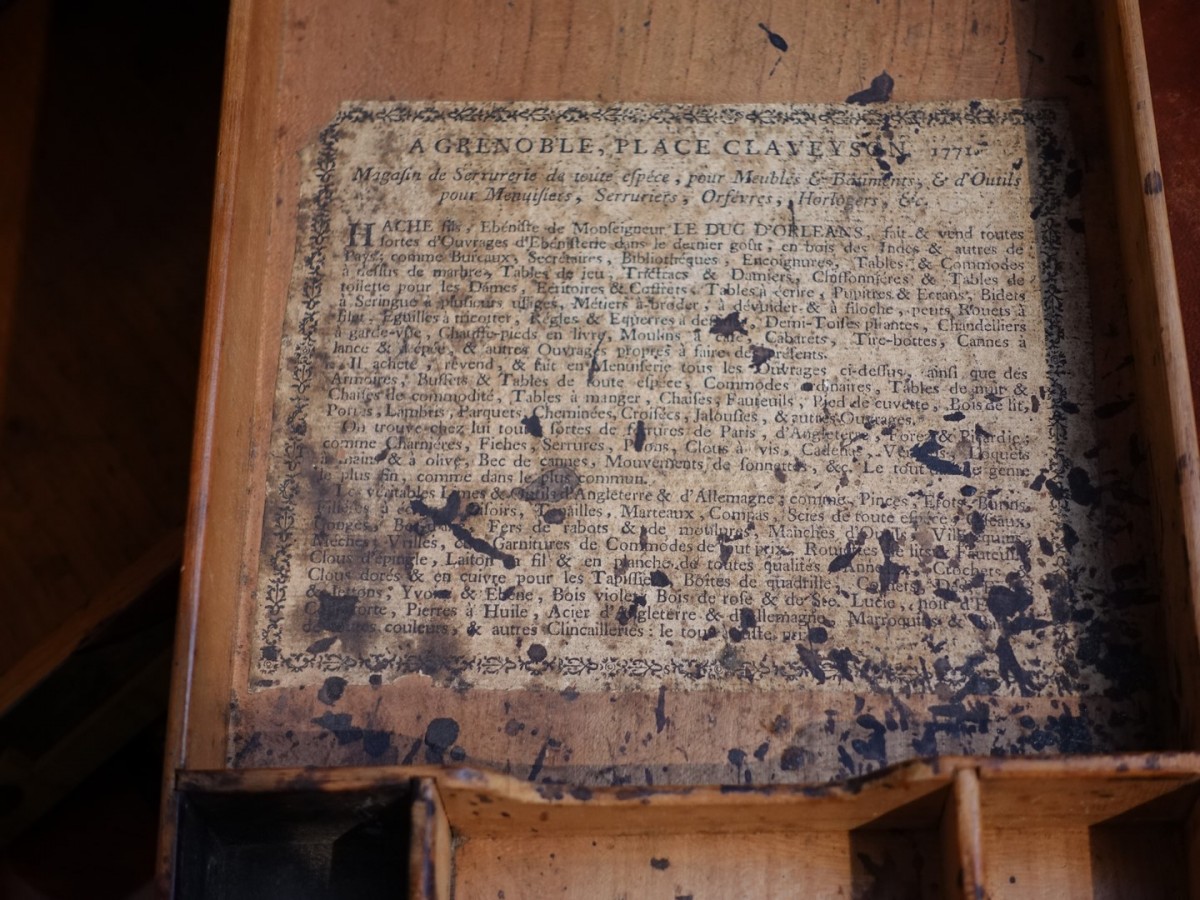 A GRENOBLE, PLACE CLAVEYSON. 1771.
Magasin de Serrurerie de toute espéce, pour Meubles & Bâtiments, & d'Outils
pour Menuisiers, Serruriers, Orfévres, Horlogers, &c.
HACHE fils, Ebéniste de Monseigneur LE DUC D'ORLEANS, fait & vend toutes
sortes d'Ouvrages d'Ebénisterie dans le dernier goût, en bois des Indes & autres de
Pays; comme Bureaux, Secrétaires, Bibliothéques, Encoignures, Tables & Commodes
à dessus de marbre, Tables de jeu, Trictracs & Damiers, Chiffonnières & Tables de
toilette pour les Dames, Ecritoires & Coffrets, Tables à écrire, Pupitres & Ecrans, Bidets
à Seringue à plusieurs usages, Métiers à broder, à dévuider & à filoche, petits Rouets à
filer, Eguilles à tricotter, Régles & Equerres à Demi-Toises pliantes, Chandelliers
à garde-vue, Chauffe-pieds en livre, Moulins à café, Cabarets, Tire-bottes, Cannes à
lance & à épée, & autres Ouvrages propres à faire des présents.
Il achete, revend, & fait en Menuiserie tous les Ouvrages ci-dessus, ainsi que des
Armoires, Buffets & Tables de toute espéce, Commodes ordinaires, Tables de nuit &
Chaises de commodité, Tables à manger, Chaises, Fauteuils, Pied de cuvette, Bois de lit,
Portes, Lambris, Parquets, Cheminées, Croisées, Jalousies, & autres Ouvrages.
On trouve chez lui toutes sortes de ferrures de Paris, d'Angleterre, Forez & Picardie;
comme Charniéres, Fiches, Serrures, Pitons, Clous à vis, Cadenas, Loquets
à mains & à olive, Bec de cannes, Mouvements de sonnettes, &c. Le tout genre
le plus fin, comme dans le plus commun.
Les véritables Limes & Outils d'Angleterre & d'Allemagne; comme Pinces, Etots, Burins,
Filiéres à Tenailles, Marteaux, Compas, Scies de toute espéce, Ciseaux,
Gouges, Fers de rabots & de moulures, Manches d'Outils, Villebrequins,
Méches, Vrilles, Garnitures de Commodes de tout prix, Roulettes de lits & Fauteuils,
Clous d'épingle, Laiton en fil & en planche de toutes qualités, Anneaux, Crochets,
Clous dorés & en cuivre pour les Tapissiers, Boîtes de quadrille,
& Jettons, Yvoire & Ebene, Bois violet, Bois de rose & de Ste. Lucie, noir
forte, Pierres à Huile, Acier d'Angleterre & d'Allemagne, Marroquins &
de couleurs, & autres Clincailleries: le tout juste prix.